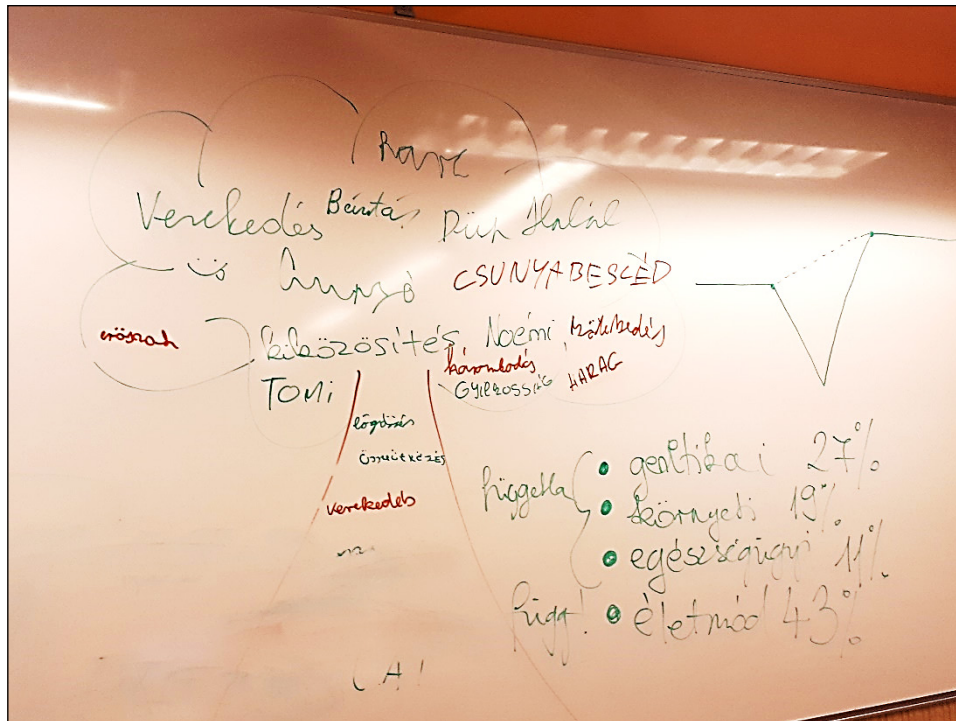 Harc
Verekedés Bántás Düh Halál
CSUNYABESZÉD
erőszak kiközösítés, Noémi,
káromkodás
TOMi GYILKOSSÁG HARAG
lögdösés
összeütközés
verekedés
független
• genitikai 27%
• környeti 19%
• egészségügyi 11%
függ! • életmód 43%